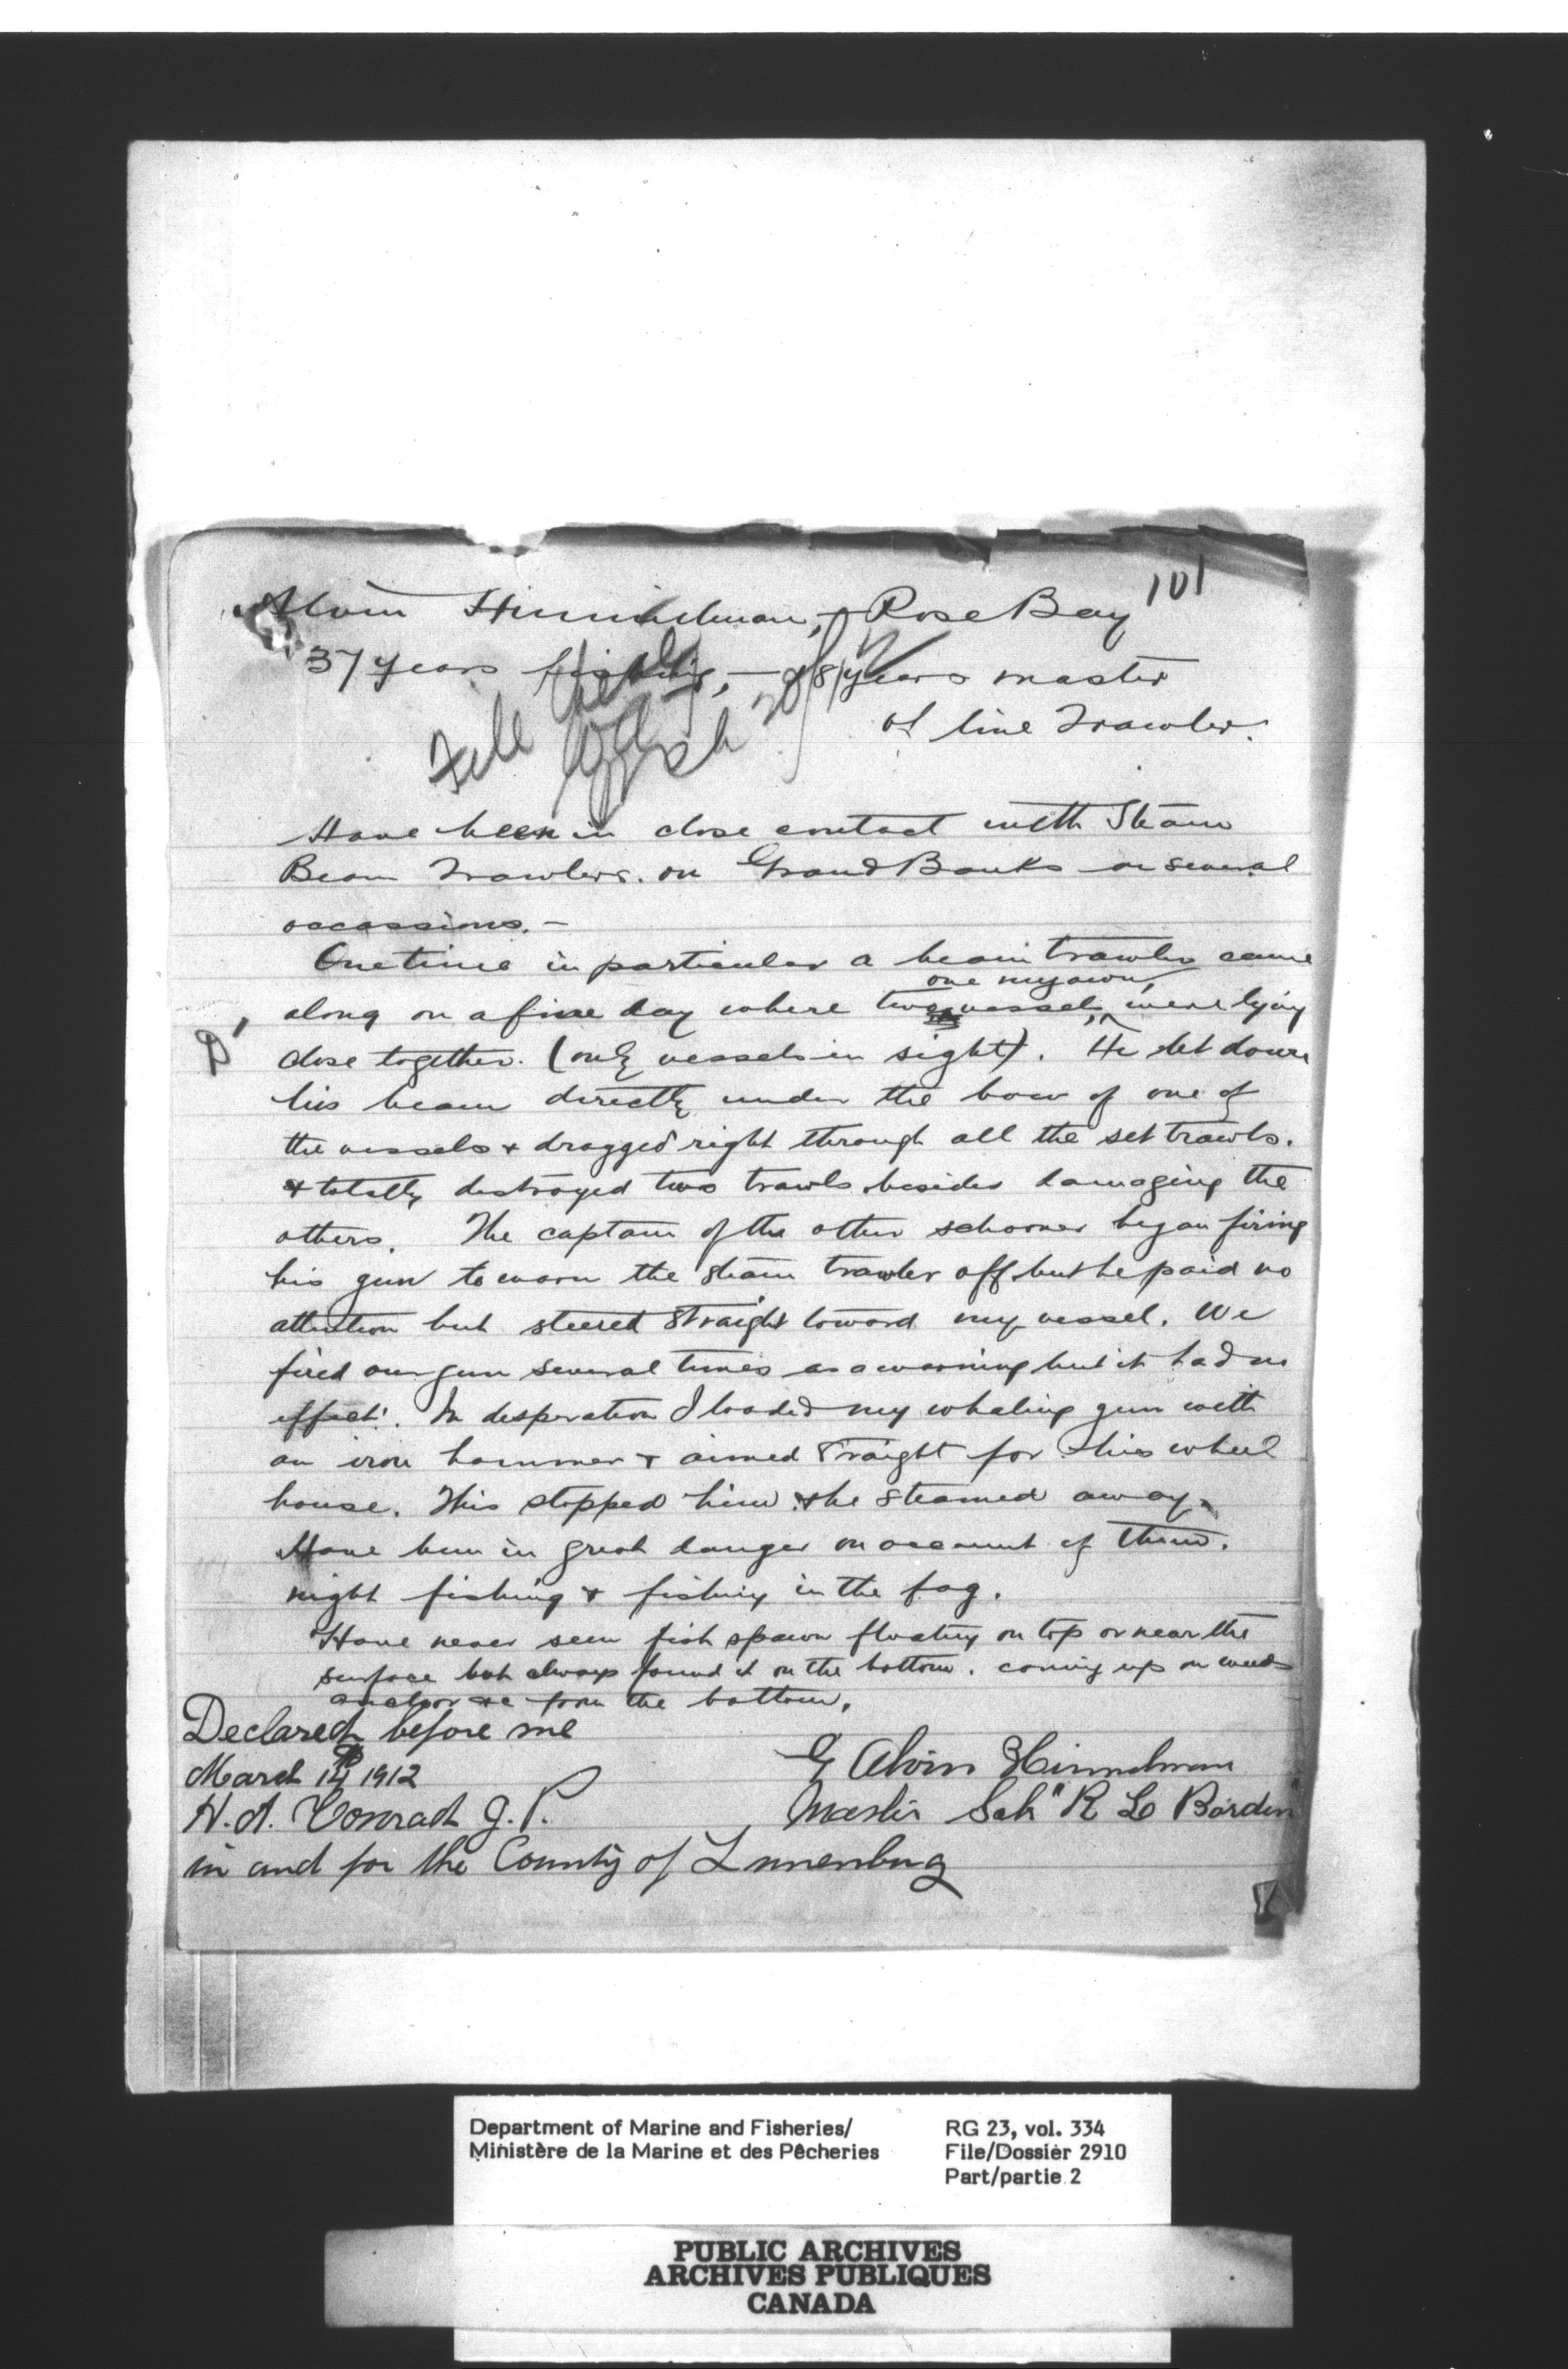 101
Alvin Himmelman, - Rose Bay
37 years fishing, - 18 years master
of line Trawler.
File
Have been in close contact with Steam
Beam Trawlers. on Grand Banks on several
occassions. -
One time in particular a beam trawler came
one my own,
along on a fine day where two vessels, were lying
close together. (only vessels in sight). He let down
his beam directly under the bow of one of
the vessels & dragged right through all the set trawls.
& totally destroyed two trawls besides damaging the
others. The captain of the other schooner began firing
his gun to warn the steam trawler off but he paid no
attention but steered straight toward my vessel. We
fired our gun several times as a warning but it had no
effect. In desperation I loaded my whaling gun with
an iron hammer & aimed straight for his wheel
house. This stopped him & he steamed away.
Have been in great danger on account of them.
night fishing & fishing in the fog.
Have never seen fish spawn floating on top or near the
surface but always found it on the bottom. coming up on weeds
anchor &c from the bottom.
Declared before me
March 14th 1912
H. A. Conrad J. P.
in and for the County of Lunenburg
G Alvin Himmelman
Master Sch "R L Borden"
Department of Marine and Fisheries/
Ministère de la Marine et des Pêcheries
RG 23, vol. 334
File/Dossier 2910
Part/partie 2
PUBLIC ARCHIVES
ARCHIVES PUBLIQUES
CANADA